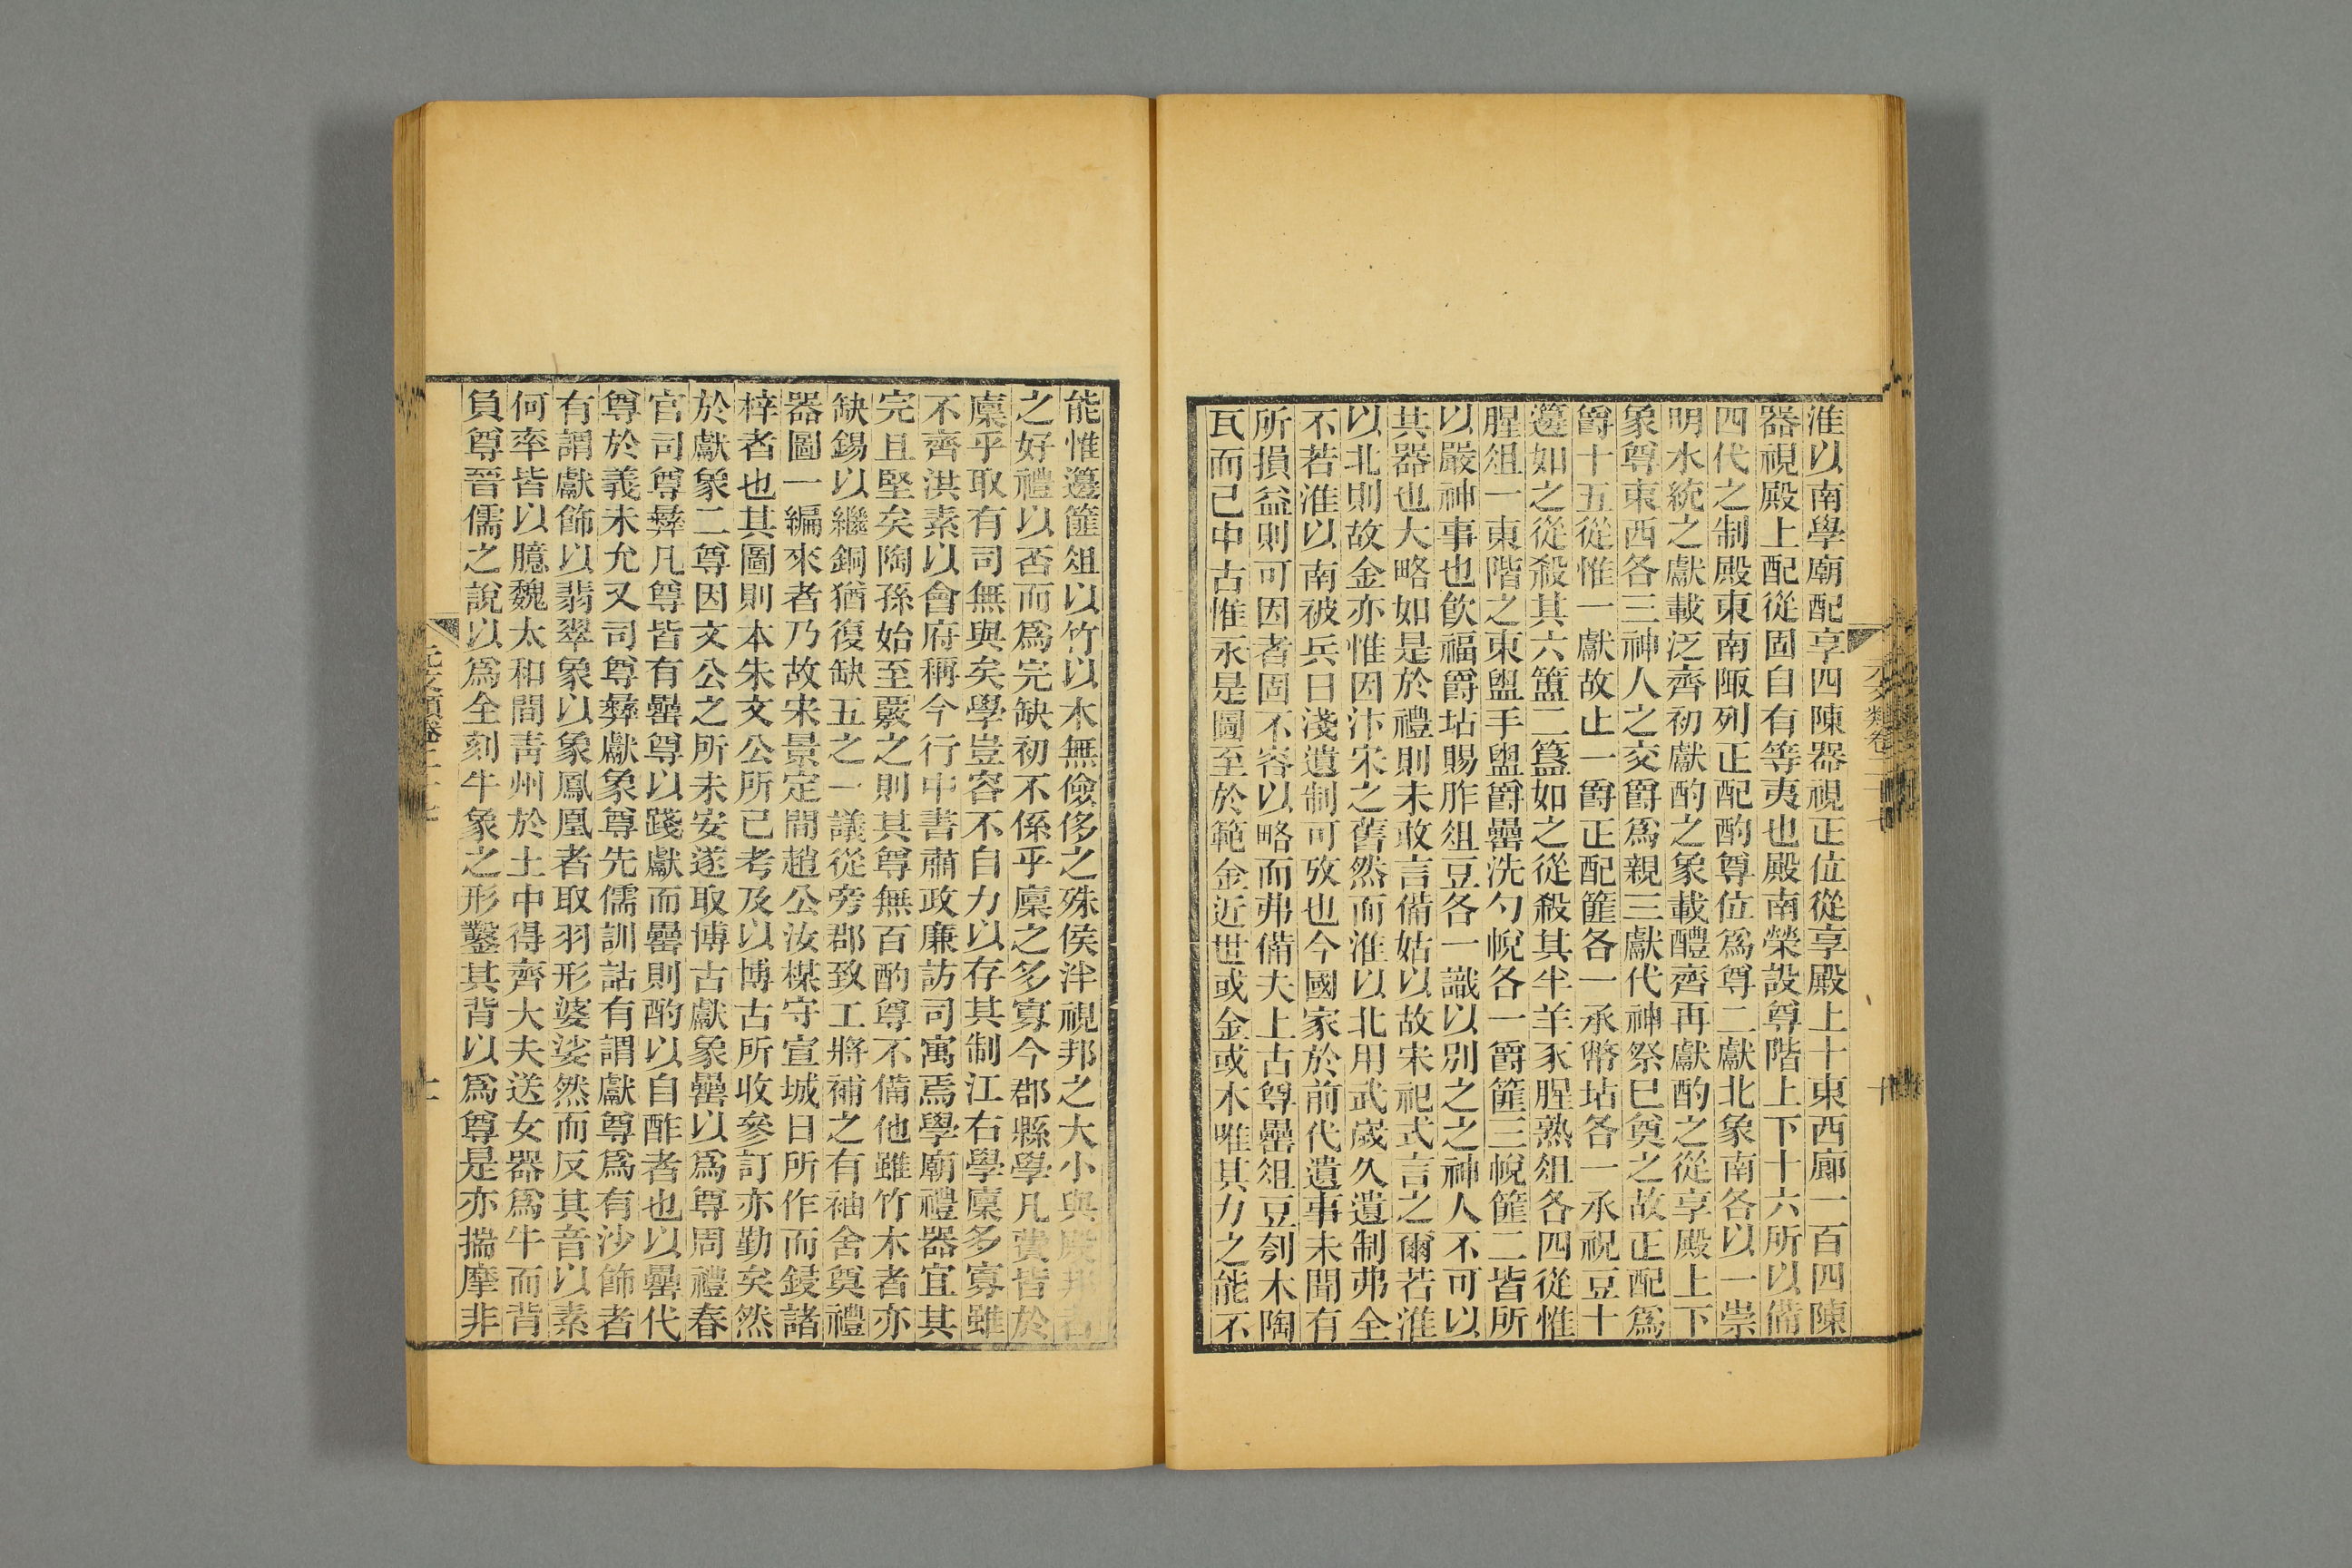 淮以南學廟配享四陳器視正位從享殿上十東西廊一百四陳
器視殿上配從固自有等夷也殿南榮設尊階上下十六所以備
四代之制殿東南陬列正配酌尊位爲尊二獻北象南各以一崇
明水統之獻載泛齊初獻酌之象載醴齊再獻酌之從享殿上下
象尊東西各三神人之交爵爲親三獻代神祭已奠之故正配爲
爵十五從惟一獻故止一爵正配篚各一承幣坫各一承祝豆十
籩如之從殺其六簠二簋如之從殺其半羊豕腥熟俎各四從惟
腥俎一東階之東盥手盥爵罍洗勺帨各一爵篚三帨篚二皆所
以嚴神事也飮福爵坫賜胙俎豆各一識以別之之神人不可以
其器也大略如是於禮則未敢言備姑以故宋祀式言之爾若淮
以北則故金亦惟因汴宋之舊然而淮以北用武歲久遺制弗全
不若淮以南被兵日淺遺制可攷也今國家於前代遺事未聞有
所損益則可因者固不容以略而弗備夫上古尊罍俎豆刳木陶
瓦而已中古惟永是圖至於範金近世或金或木唯其力之能不
能惟籩篚俎以竹以木無儉侈之殊侯泮視邦之大小與
之好禮以否而爲完缺初不係乎廩之多寡今郡縣學凡費皆於
廩乎取有司無與矣學豈容不自力以存其制江右學廩多寡雖
不齊洪素以會府稱今行中書肅政廉訪司寓焉學廟禮器宜其
完且堅矣陶孫始至覈之則其尊無百酌尊不備他雖竹木者亦
缺錫以繼銅猶復缺五之一議從旁郡致工將補之有袖舍奠禮
器圖一編來者乃故宋景定間趙公汝楳守宣城日所作而鋟諸
梓者也其圖則本朱文公所已考及以博古所收參訂亦勤矣然
於獻象二尊因文公之所未安遂取博古獻象罍以爲尊周禮春
官司尊彝凡尊皆有罍尊以踐獻而罍則酌以自酢者也以罍代
尊於義未允又司尊彝獻象尊先儒訓詁有謂獻尊爲有沙飾者
有謂獻飾以翡翠象以象鳳凰者取羽形婆娑然而反其音以素
何率皆以臆魏太和間靑州於土中得齊大夫送女器爲牛而背
負尊晉儒之說以爲全刻牛象之形鑿其背以爲尊是亦揣摩非